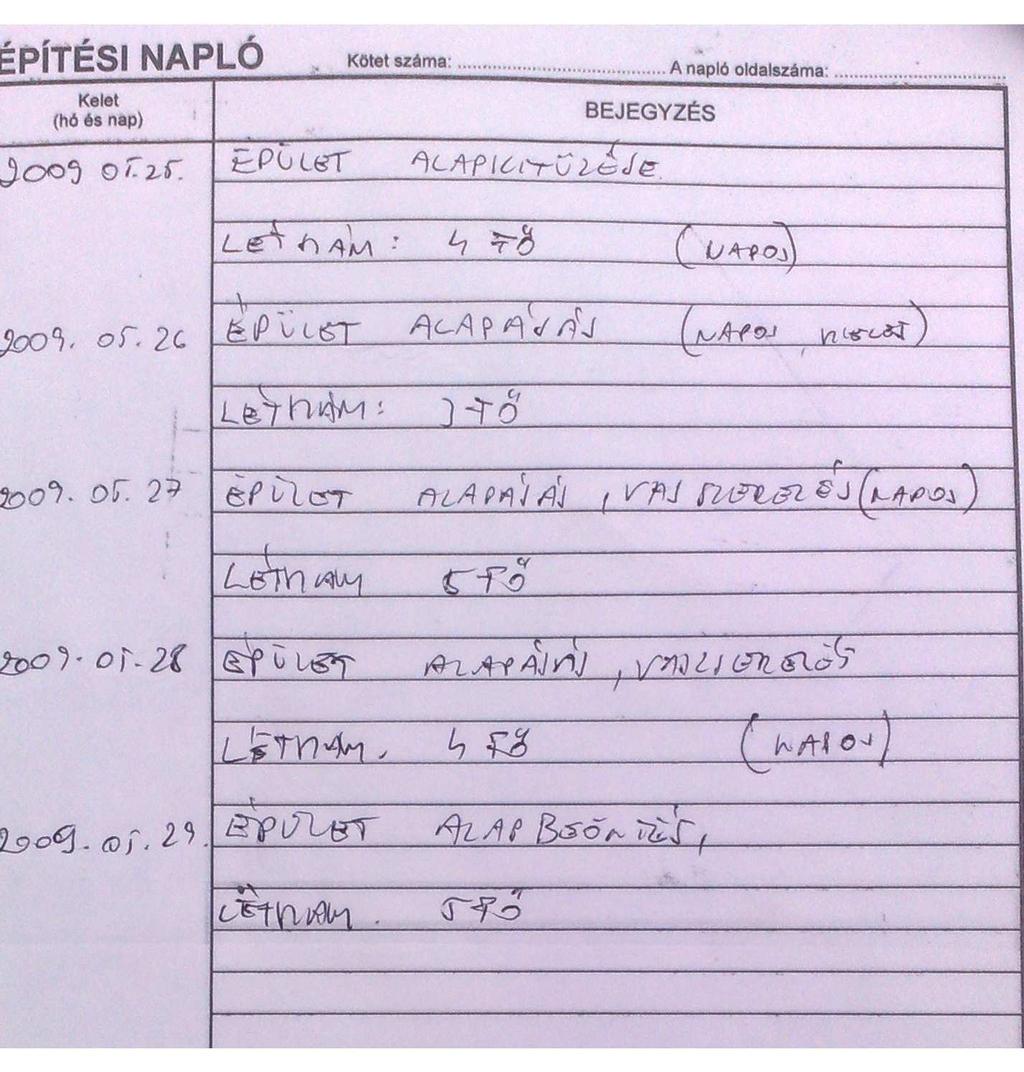 ÉPÍTÉSI NAPLÓ Kötet száma: A napló oldalszáma:
Kelet
(hó és nap)
BEJEGYZÉS
2009 05.25. ÉPÜLET ALAPKITŰZÉSE.
LÉTSZÁM: 4 FŐ (NAPOS)
2009. 05. 26 ÉPÜLET ALAPÁSÁS (NAPOS, SZELES)
LÉTSZÁM: 3 FŐ
2009. 05. 27 ÉPÜLET ALAPÁSÁS, VASSZERELÉS (NAPOS)
LÉTSZÁM 5 FŐ
2009. 05. 28 ÉPÜLET ALAPÁSÁS, VASSZERELÉS
LÉTSZÁM. 4 FŐ (NAPOS)
2009. 05. 29. ÉPÜLET ALAP BEÖNTÉS,
LÉTSZÁM. 5 FŐ